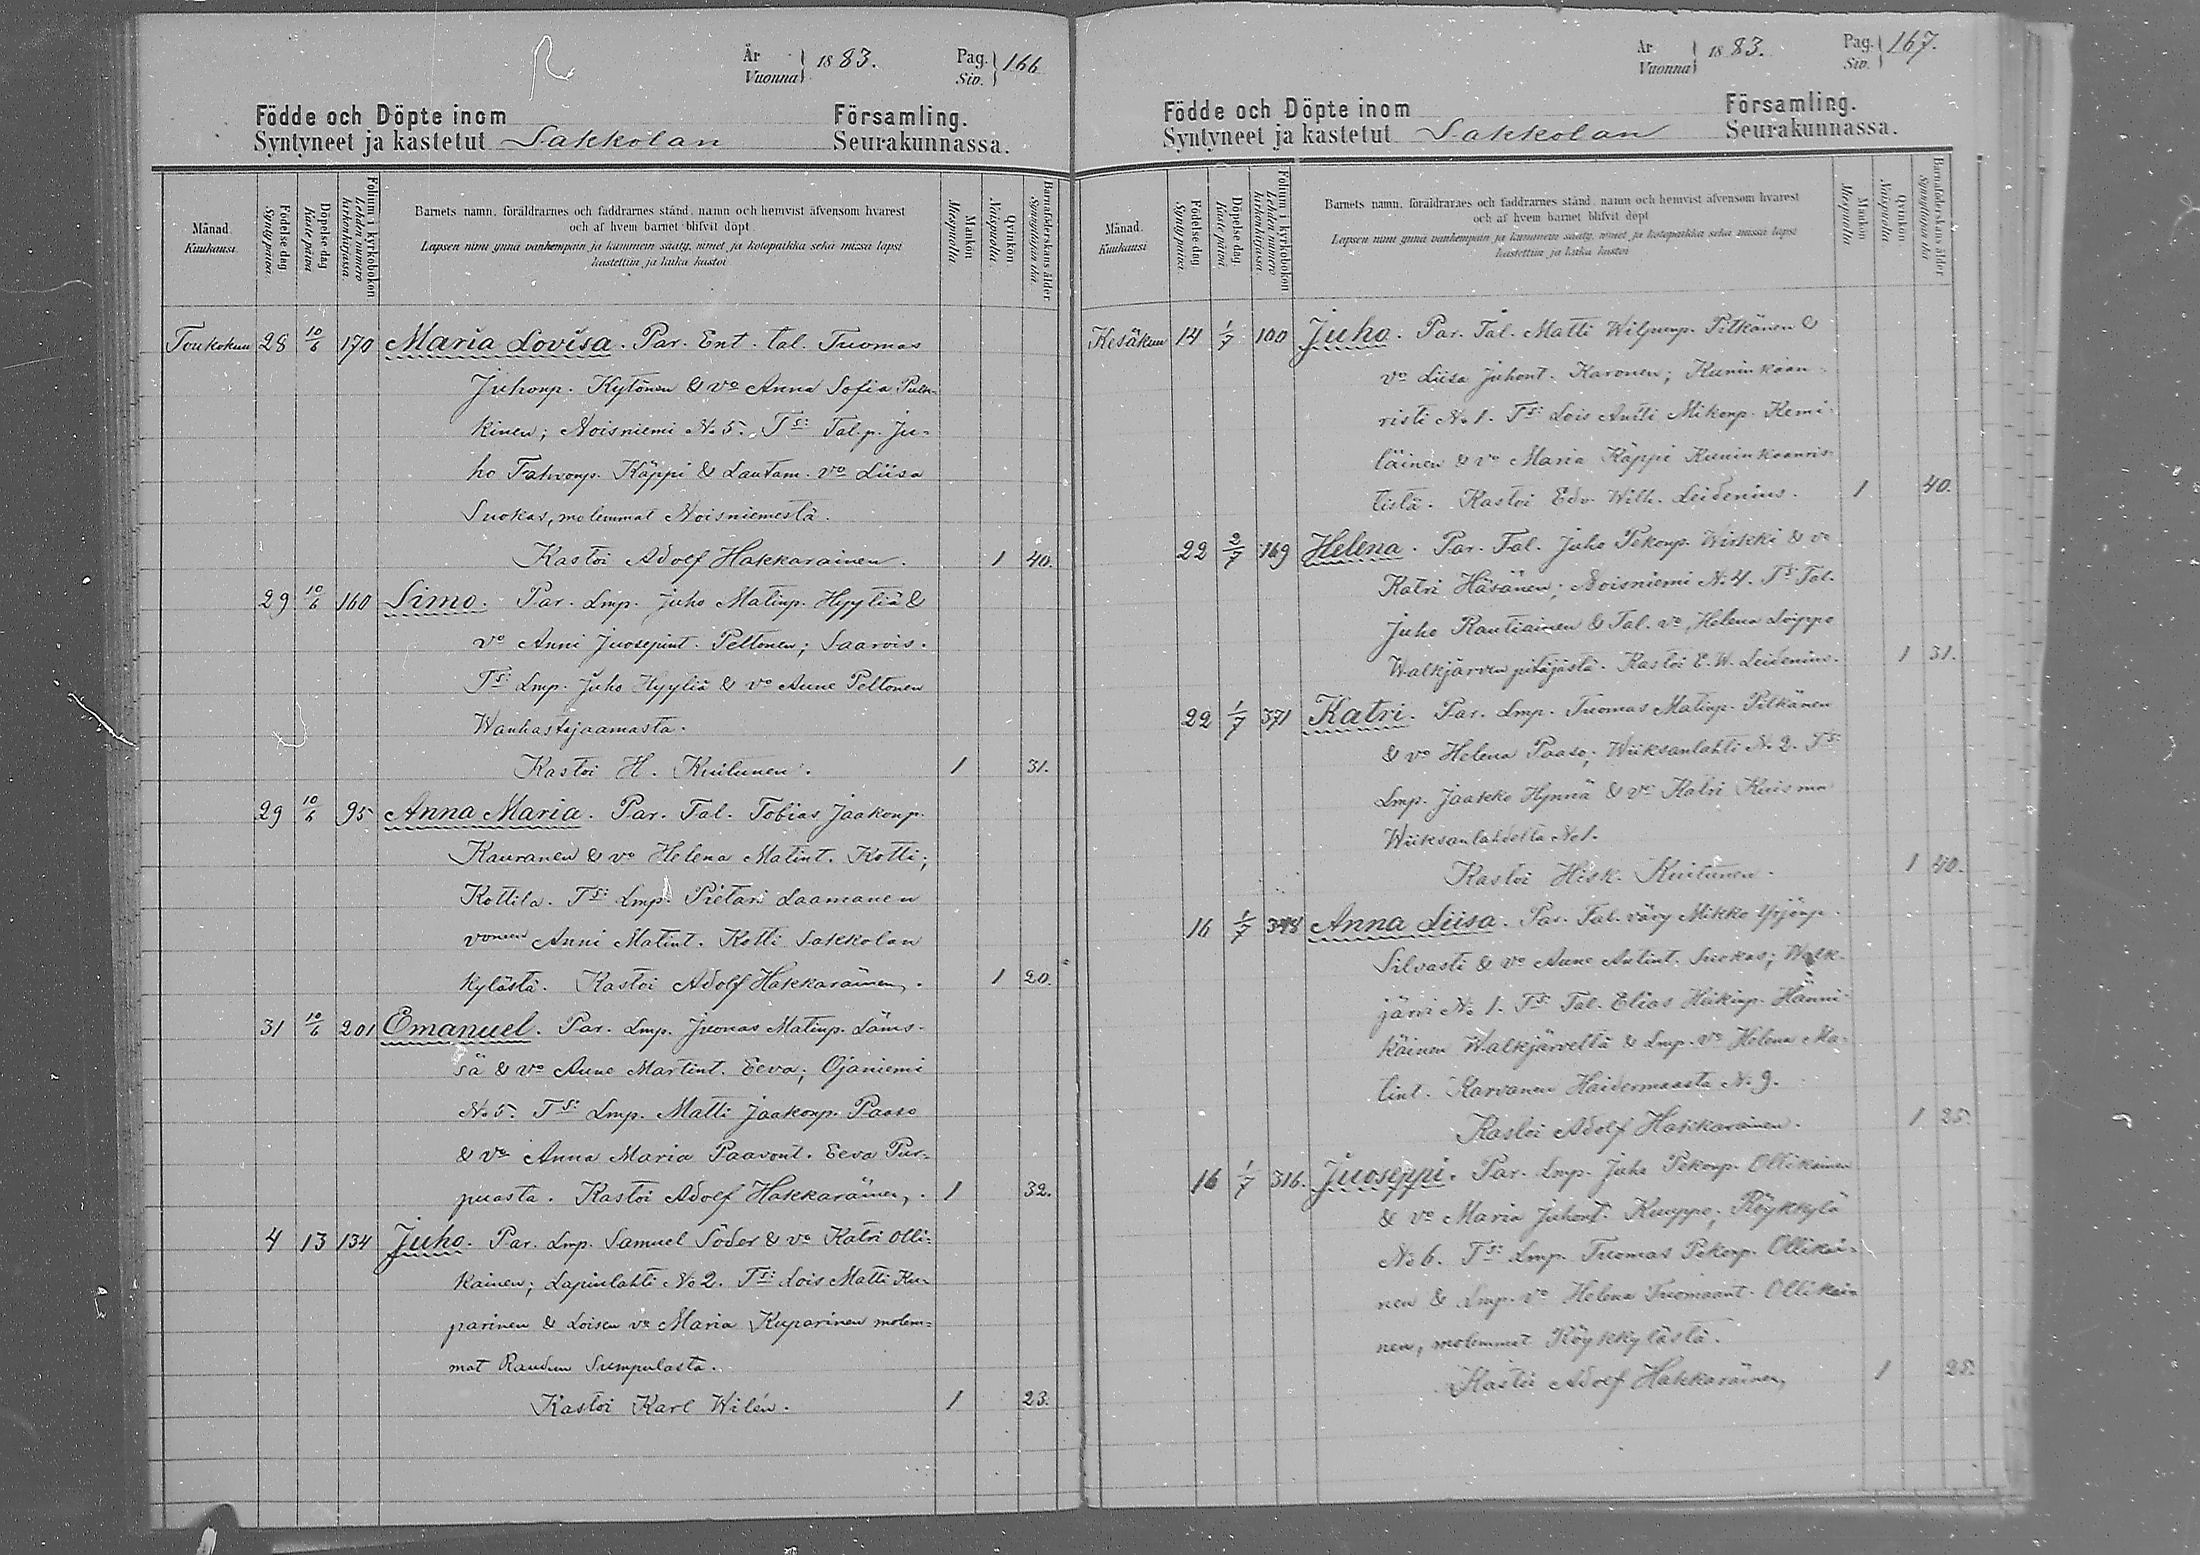 År
Vuonna } 1883.
Pag.
Siv. } 166
Födde och Döpte inom Församling.
Syntyneet ja kastetut Sakkolan Seurakunnassa.
Månad.
Kuukausi.
Födelsedag
Syntypäivä
Döpelsedag
Kastepäivä
Folium i kyrkoboken
Lehden numero kirkonkirjassa
Barnets namn, föräldrarnes och faddrarnes stånd, namn och hemvist äfvensom hvarest
och af hvem barnet blifvit döpt
Lapsen nimi ynnä vanhempain ja kummein sääty, nimet ja kotopaikka sekä missä lapsi
kastettiin ja kuka kastoi
Mankön
Miespuolia
Qvinkön
Naispuolia
Barnaföderskans ålder
Synnyttäjän ikä
Toukokuu 28 10/6 170 Maria Lovisa. Par. Ent. tal. Tuomas
Juhonp. Kytönen & vo Anna Sofia Pulk-
kinen; Noisniemi No 5. Tst: Tal. p. Ju-
ho Fahvonp. Käppi & Lautam. vo Liisa
Suokas, molemmat Noisniemestä.
Kastoi Adolf Hakkarainen. 1 40.
29 10/6 160 Simo. Par. Lmp. Juho Matinp. Hyytiä &
vo Anni Juosepint. Peltonen; Saarois.
Tst: Lmp. Juho Hyytiä & vo Aune Peltonen
Wanhastajaamasta.
Kastoi H. Kuitunen. 1 31.
29 10/6 95 Anna Maria. Par. Tal. Tobias Jaakonp.
Kauranen & vo Helena Matint. Kotti;
Kottila. Tst: Lmp. Pietari Laamanen
Anni Matint. Kotti Sakkolan
kylästä. Kastoi Adolf Hakkaräinen. 1 20.
31 10/6 201 Emanuel. Par. Lmp. Juonas Matinp. Läms-
sä & vo Aune Martint. Eeva; Ojaniemi
No 5. Tst: Lmp. Matti Jaakonp. Paaso
& vo Anna Maria Paavont. Eeva Pur-
puasta. Kastoi Adolf Hakkaräinen. 1 32.
4 13 134 Juho. Par. Lmp. Samuel Söder & vo Katri Olli-
kainen; Lapinlahti No 2. Tst: Lois Matti Ku-
parinen & Loisen vo Maria Kuparinen molem-
mat Raudun Sumpulasta.
Kastoi Karl Wilén. 1 23.
År
Vuonna } 1883.
Pag.
Siv. } 167.
Födde och Döpte inom Församling.
Syntyneet ja kastetut Sakkolan Seurakunnassa.
Månad.
Kuukausi.
Födelsedag
Syntypäivä
Döpelsedag
Kastepäivä
Folium i kyrkoboken
Lehden numero kirkonkirjassa
Barnets namn, föräldrarnes och faddrarnes stånd, namn och hemvist äfvensom hvarest
och af hvem barnet blifvit döpt
Lapsen nimi ynnä vanhempain ja kummein sääty, nimet ja kotopaikka sekä missä lapsi
kastettiin ja kuka kastoi
Mankön
Miespuolia
Qvinkön
Naispuolia
Barnaföderskans ålder
Synnyttäjän ikä
Kesäkuu 14 1/7 100 Juho. Par. Tal. Matti Wilpunp. Pitkänen &
vo Liisa Juhont. Karonen; Kuninkaan-
risti No 1. Tst: Lois Antti Mikonp. Kemi-
läinen & vo Maria Käppi Kuninkaanris-
tistä. Kastoi Edv. Wilh. Leidenius. 1 40.
22 2/7 169 Helena. Par. Tal. Juho Pekonp. Wirkki & vo
Katri Häsänen; Noisniemi No 4. Tst Tal.
Juho Rautiainen & Tal. vo, Helena Löppö
Walkjärven pitäjästä. Kastoi E. W. Leidenius. 1 31.
22 1/7 371 Katri. Par. Lmp. Tuomas Matinp. Pitkänen
& vo Helena Paaso; Wiiksanlahti No 2. Tst:
Lmp. Jaakko Hynnä & vo Katri Kuisma
Wiiksanlahdelta No 1.
Kastoi Hisk. Kuitunen. 1 40.
16 1/7 348 Anna Liisa. Par. Tal. vävy Mikko Yrjönp.
Silvasti & vo Aune Antint. Suokas; Walk-
järvi No 1. Tst: Tal. Elias Heikinp. Hänni-
käinen Walkjärveltä & Lmp. vo Helena Ma-
tint. Karvanen Haidermaasta No 9.
Kastoi Adolf Hakkarainen. 1 25.
16 1/7 316. Juoseppi. Par. Lmp. Juho Pekonp. Ollikainen
& vo Maria Juhont. Kuuppo; Röykkylä
No 6. Tst: Lmp. Tuomas Pekonp. Ollikai-
nen & Lmp. vo Helena Tuomaant. Ollikai-
nen, molemmat Röykkylästä.
Kastoi Adolf Hakkaräinen, 1 28.